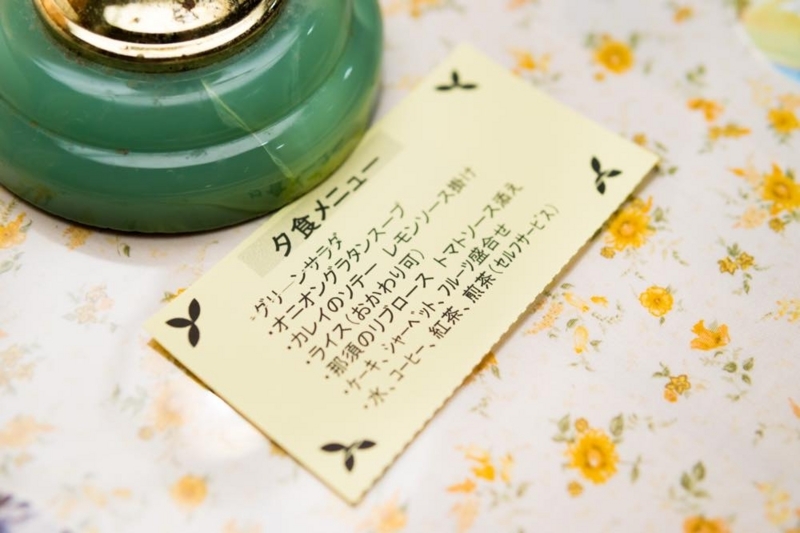 夕食メニュー
・グリーンサラダ
・オニオングラタンスープ
・カレイのソテー レモンソース掛け
・ライス(おかわり可)
・那須のリブロース トマトソース添え
・ケーキ、シャーベット、フルーツ盛合せ
・水、コーヒー、紅茶、煎茶(セルフサービス)